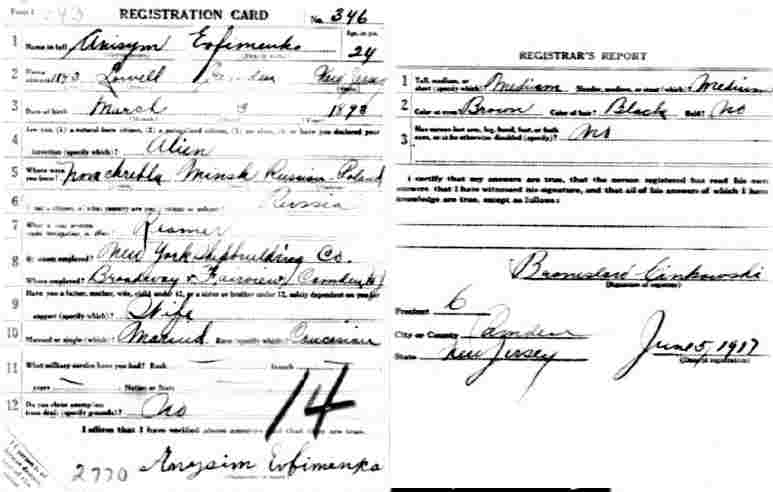 Form 1
REGISTRATION CARD No. 346
1 Name in full Anisym Evfimenko Age, in yrs. 24
2 Home address 1873 Lowell Camden New Jersey
3 Date of birth March 3 1893
4 Are you (1) a natural-born citizen, (2) a naturalized citizen, (3) an alien, (4) or have you declared your
intention (specify which)? Alien
5 Where were you born? Minsk Russian Poland
6 If not a citizen, of what country are you a citizen or subject? Russia
7 What is your present trade, occupation, or office? Reamer
8 By whom employed? New York Shipbuilding Co.
Where employed? Broadway & Fairview Camden NJ
9 Have you a father, mother, wife, child under 12, or a sister or brother under 12, solely dependent on you for
support (specify which)? Wife
10 Married or single (which)? Married Race (specify which)? Caucasian
11 What military service have you had? Rank branch
years Nation or State
12 Do you claim exemption from draft (specify grounds)? No
14
I affirm that I have verified above answers and that they are true.
2770 Evfimenko
REGISTRAR'S REPORT
1 Tall, medium, or short (specify which)? Medium Slender, medium, or stout (which)? Medium
2 Color of eyes? Brown Color of hair? Black Bald? No
3 Has person lost arm, leg, hand, foot, or both
eyes, or is he otherwise disabled (specify)? No
I certify that my answers are true, that the person registered has read his own
answers, that I have witnessed his signature, and that all of his answers of which I have
knowledge are true, except as follows:
Bronislaw Cinkowski
(Signature of registrar)
Precinct 6
City or County Camden
State New Jersey
June 5, 1917
(Date of registration)